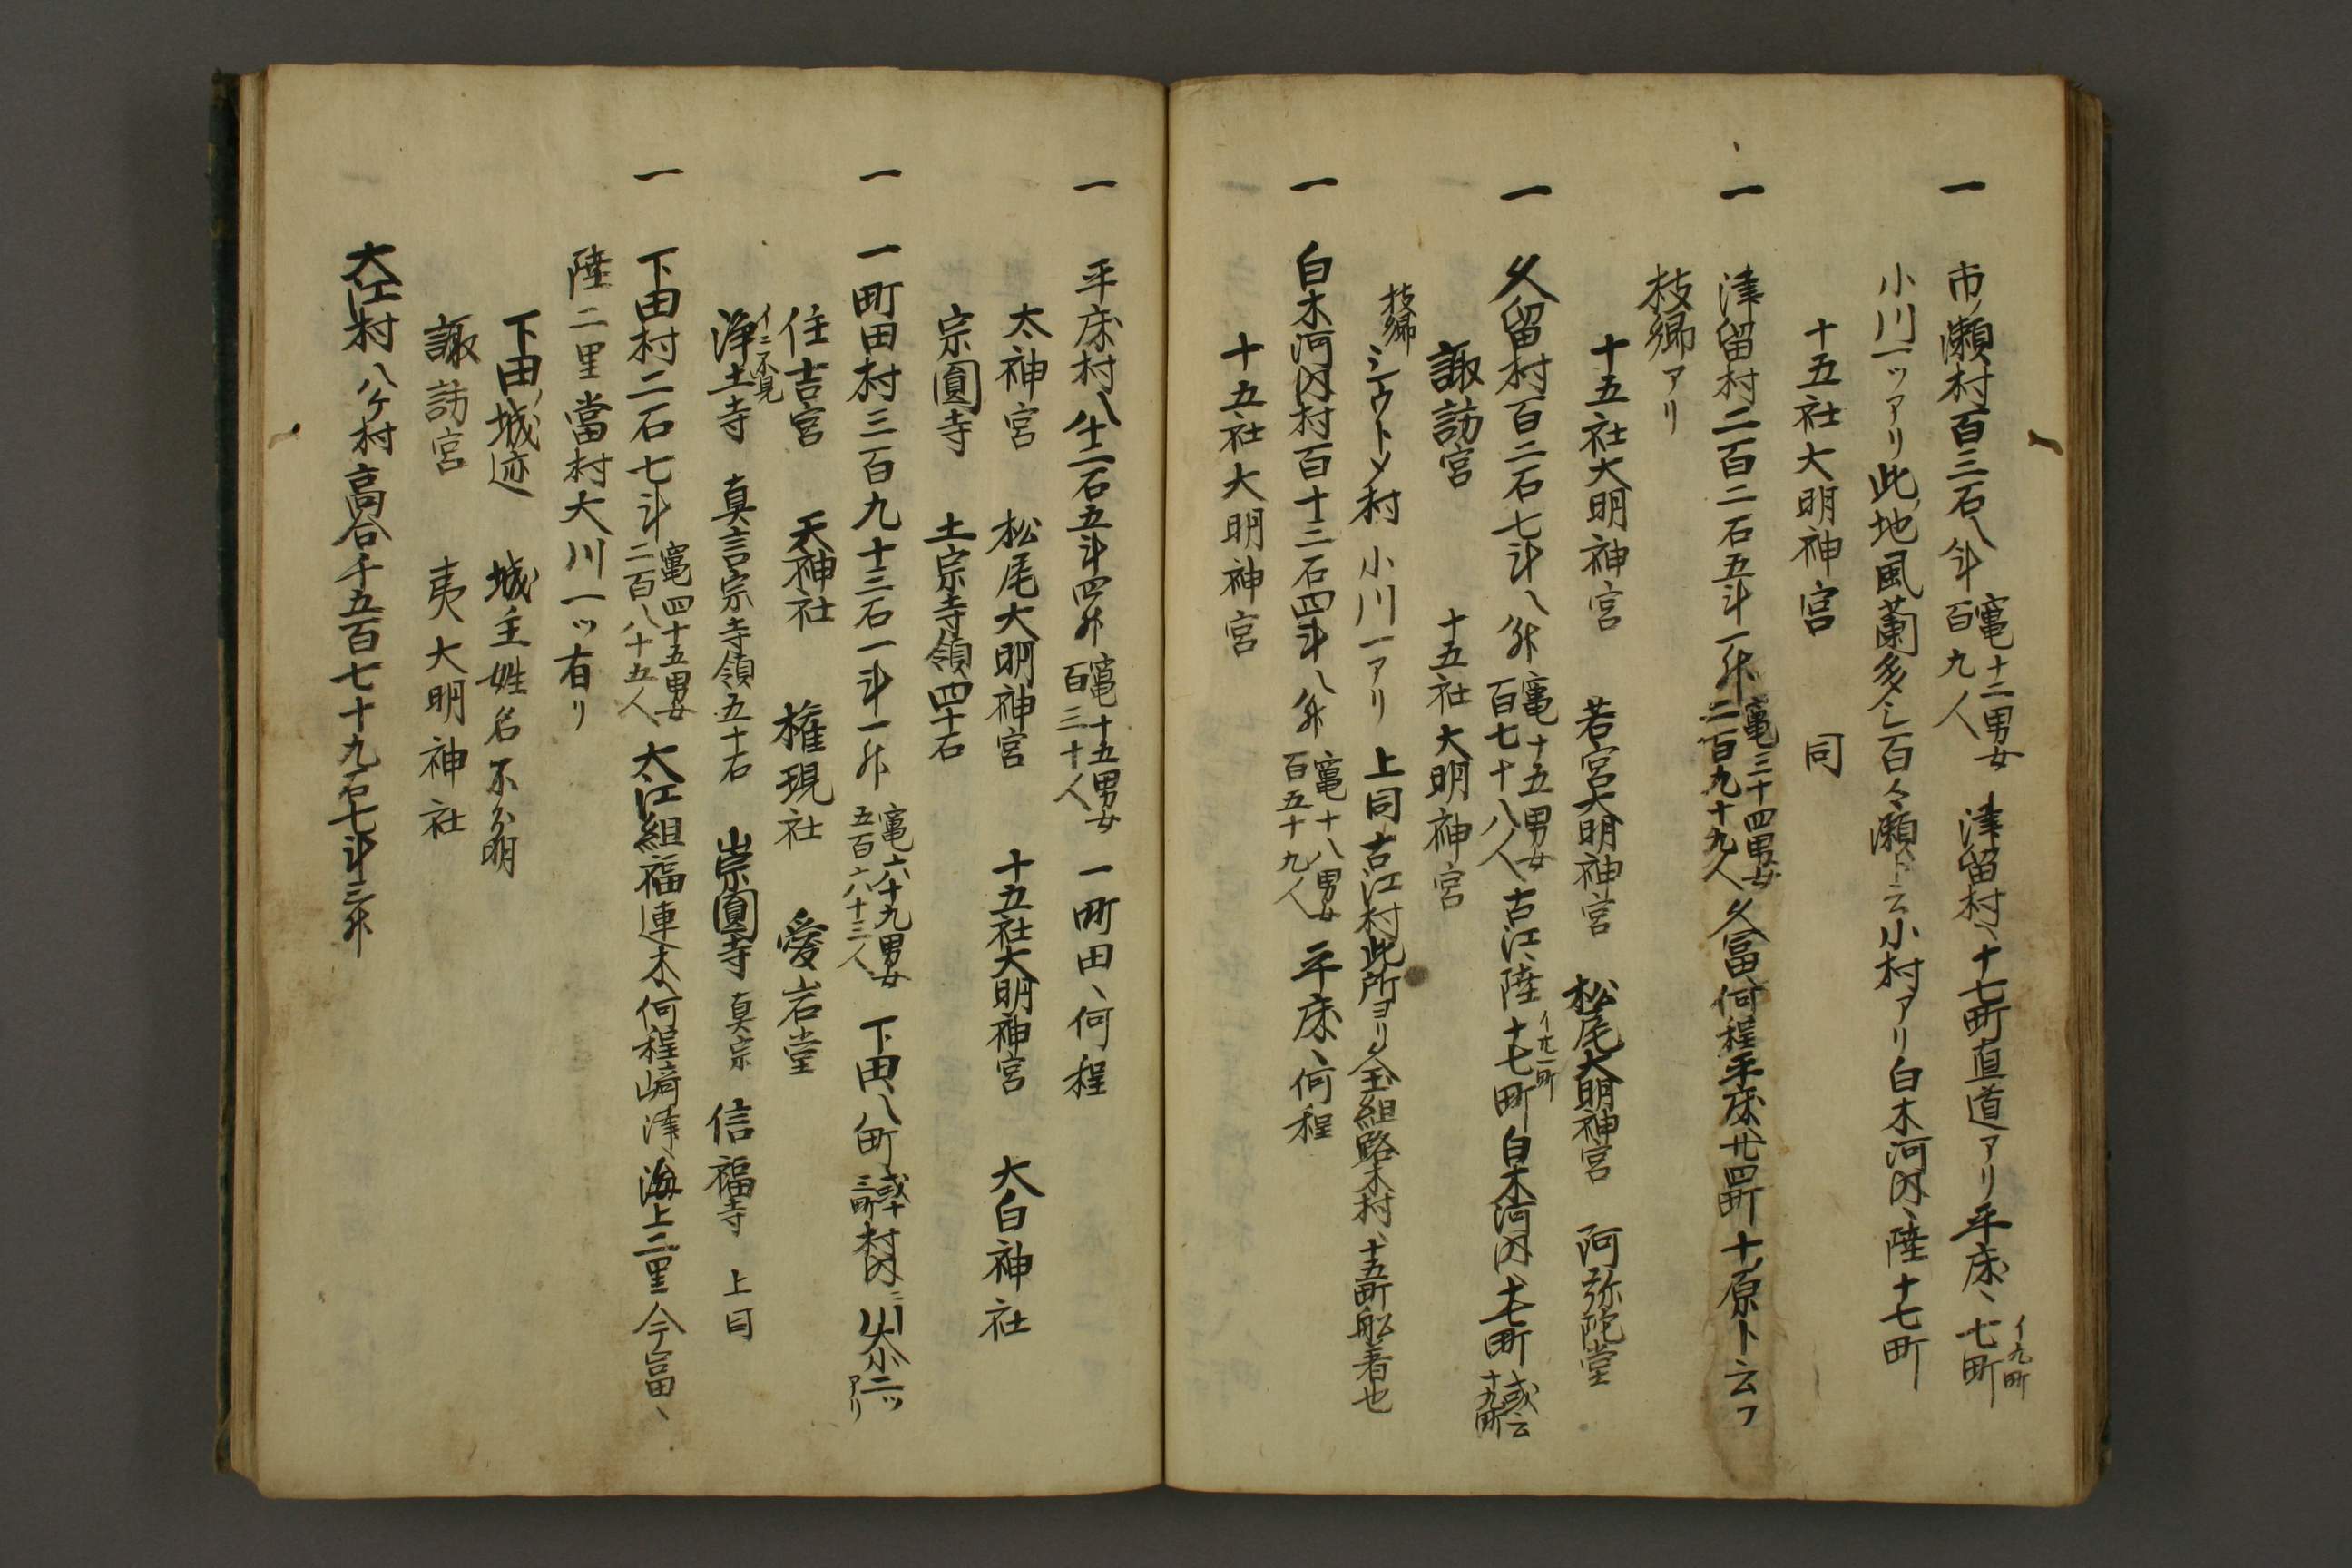 一 市ノ瀬村百三石八斗 竃十二男女百九人 津留村ヘ十七町直道アリ平床ヘ七町 イ九町
小川一ツアリ此地風蘭多シ百々瀬ト云小村アリ白木河内ヘ陸十七町
十五社大明神宮 同
一 津留村二百二石五斗一升 竃三十四男女二百九十九人 久冨ヘ何程平床ヘ廿四町十原ト云フ
枝郷アリ
十五社大明神宮 若宮大明神宮 松尾大明神宮 阿弥陀堂
一 久留村百二石七斗八升 竃十五男女百七十八人 古江ヘ陸十七町 イ廿一町 白木河内ヘ十七町 或云十九町
諏訪宮 十五社大明神宮
枝郷 シウトメ村 小川一アリ 上同古江村此所ヨリ 組路木村ヘ十五町船着也
一 白木河内村百十二石四斗八升 竃十八男女百五十九人 平床ヘ何程
十五社大明神宮
一 平床村八十二石五斗四升 竃十五男女百三十人 一町田ヘ何程
太神宮 松尾大明神宮 十五社大明神宮 大白神社
宗圓寺 土宗寺領四十石
一 一町田村三百九十三石一斗一升 竃六十九男女五百六十三人 下田ヘ八町 或十三町 村内ニ川大小二ツアリ
住吉宮 天神社 権現社 愛岩堂
イニ不見
浄土寺 真言宗寺領五十石 崇圓寺 真宗 信福寺 上同
一 下田村二石七斗 竃四十五男女二百八十五人 大江組福連木ヘ何程崎津ヘ海上二里今冨ヘ
陸二里當村大川一ツ有リ
下田ノ城迹 城主姓名不分明
諏訪宮 夷大明神社
大江村八ケ村高合千五百七十九石七斗三升